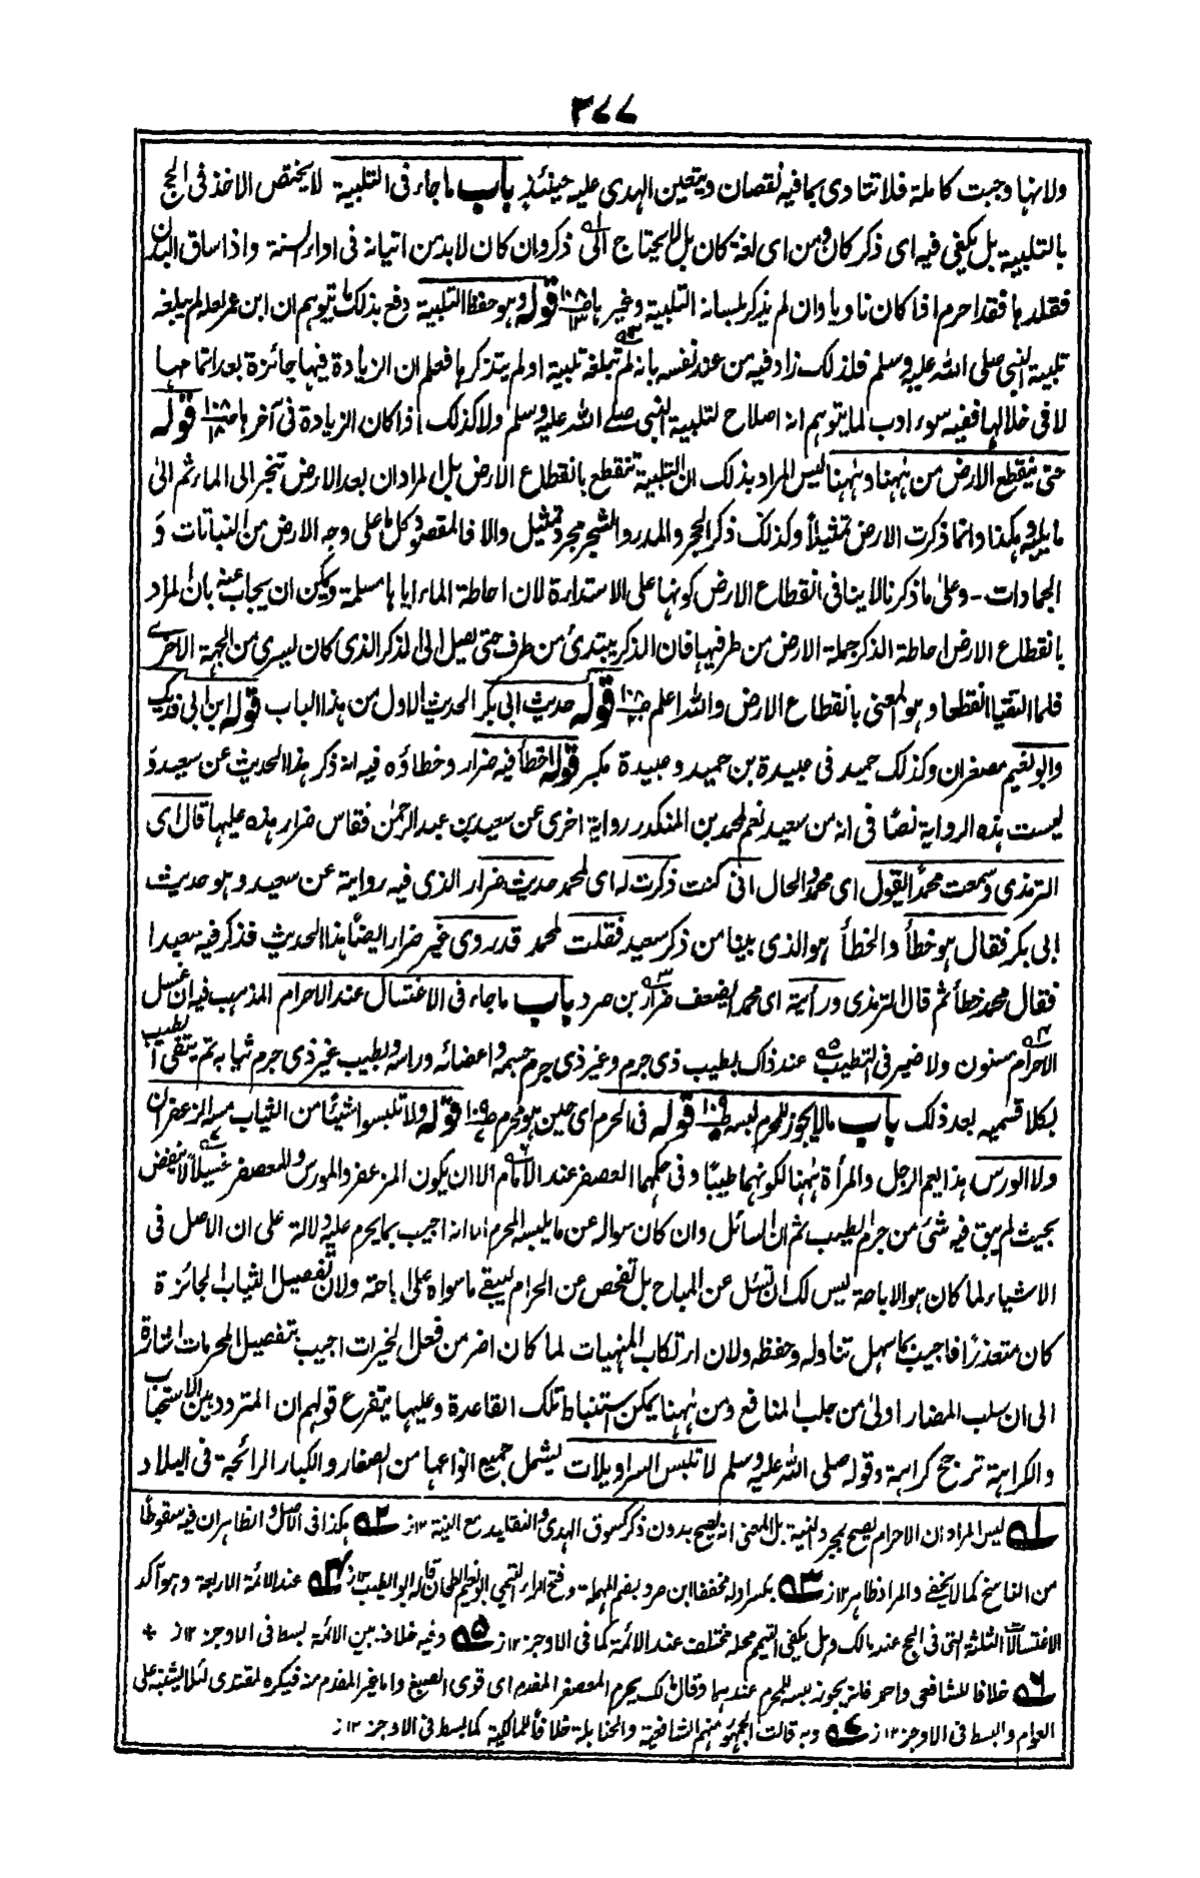 ٣٧٧
ولانها وجبت كاملة فلا تتادى بما فيه نقصان ويتعين الهدى عليه حينئذ باب ماجاء فى التلبية لا يختص الاخذ فى الحج
بالتلبية بل يكفى فيه اى ذكر كان ومن اى لغة كان بل لا يحتاج الى ذكر وان كان لا بد من اتيانه فى اداء السنة واذا ساق البدن
فقلدها فقد احرم اذا كان ناويا وان لم يذكر لسانه التلبية وغيرها قوله وهو حفظ التلبية دفع بذلك ما يتوهم ان ابن عمر لعله لم يبلغه
تلبية النبى صلى الله عليه وسلم فلذلك زاد فيه من عند نفسه بانه لم تبلغه تلبية او لم يتذكرها فعلم ان الزيادة فيها جائزة بعد اتمامها
لا فى خلالها ففيه سوء ادب لما يتوهم انه اصلاح لتلبية النبى صلے الله عليه وسلم ولا كذلك اذا كان الزيادة فى آخرها قوله
حتى ينقطع الارض من ههنا وههنا ليس المراد بذلك ان التلبية تنقطع بانقطاع الارض بل المراد ان بعد الارض تنجر الى الماء ثم الى
ما يليه وهكذا وانما ذكرت الارض تمثيلاً وكذلك ذكر الحجر والمدر والشجر مجرد تمثيل والا فالمقصود كل ما على وجه الارض من النباتات و
الجمادات - وعلى ما ذكرنا لا ينافى انقطاع الارض كونها على الاستدارة لان احاطة الماء اياها مسلمة ويمكن ان يجاب عنه بان المراد
بانقطاع الارض احاطة الذكر جملة الارض من طرفيها فان الذكر يبتدئ من طرف حتى يصل الى الذكر الذى كان يسرى من الجهة الاخرے
فلما التقيا انقطعا وهو المعنى بانقطاع الارض والله اعلم قوله حديث ابى بكر الحديث الاول من هذا الباب قوله ابن ابى فديك
وابو نعيم مصغران وكذلك حميد فى عبيدة بن حميد وعبيدة مكبر قوله اخطأ فيه ضرار وخطاؤه فيه انه ذكر هذا الحديث عن سعيد و
ليست هذه الرواية نصا فى انه من سعيد نعم لمحمد بن المنكدر رواية اخرى عن سعيد بن عبد الرحمٰن فقاس ضرار هذه عليها قال اى
الترمذى وسمعت محمدا يقول اى محمد والحال انى كنت ذكرت له اى لمحمد حديث ضرار الذى فيه رواية عن سعيد وهو حديث
ابى بكر فقال هو خطأ والخطأ هو الذى بينا من ذكر سعيد فقلت لمحمد قد روى غير ضرار ايضا هذا الحديث فذكر فيه سعيدا
فقال محمد خطأ ثم قال الترمذى ورأيته اى محمدا يضعف ضرار بن صرد باب ماجاء فى الاغتسال عند الاحرام المذهب فيه ان غسل
الاحرام مسنون ولا ضير فى التطيب عند ذاك بطيب ذى جرم وغير ذى جرم جسمه واعضائه وراسه وبطيب غير ذى جرم ثيابه ثم يتقى الطيب
بكلا قسميه بعد ذلك باب مالا يجوز للمحرم لبسه قوله فى الحرم اى حين هو محرم قوله ولا تلبسوا شيئا من الثياب مسه الزعفران
ولا الورس هذا يعم الرجل والمرأة ههنا لكونهما طيبا وفى حكمهما العصفر عند الامام الا ان يكون المزعفر والمورس والمعصفر غسيلا لا ينفض
بحيث لم يبق فيه شئ من جرم الطيب ثم ان السائل وان كان سواله عن ما يلبسه المحرم اما انه اجيب بما يحرم عليه دلالة على ان الاصل فى
الاشياء لما كان هو الاباحة ليس لك ان تسئل عن المباح بل تفحص عن الحرام ليبقے ما سواه على اباحته ولان تفصيل الثياب الجائزة
كان متعذرا فاجيب بما سهل تناوله وحفظه ولان ارتكاب المنهيات لما كان اضر من فعل الخيرات اجيب بتفصيل المحرمات اشارة
الى ان سلب المضار اولى من جلب المنافع ومن ههنا يمكن استنباط تلك القاعدة وعليها يتفرع قولهم ان المتردد بين الاستحباب
والكراهة ترجح كراهته وقوله صلى الله عليه وسلم لا تلبس السراويلات ليشمل جميع انواعها من الصغار والكبار الرائجة فى البلاد
١؎ ليس المراد ان الاحرام يصح بمجرد النية بل المعنى انه يصح بدون ذكر كسوق الهدى والتقليد مع النية ١٢ز ٢؎ هكذا فى الاصل والظاهر ان فيه سقوطا
من الناسخ كما لا يخفے والمراد ظاهر ١٢ز ٣؎ بكسر اوله مخففا ابن صرد بضم المهملة وفتح الراء التيمى ابو نعيم الطحان قاله ابو الطيب ١٢ز ٤؎ عند الائمة الاربعة وهو آكد
الاغتسالات الثلثة التى فى الحج عند مالك وهل يكفى التيمم محله مختلف عند الائمة كما فى الاوجز ١٢ز ٥؎ وفيه خلاف بين الائمة بسط فى الاوجز ١٢ز
٦؎ خلافا للشافعى واحمد فانه يجوز لبسه للمحرم عندهما وقال مالك يحرم المعصفر المفدم اى قوى الصبغ واما غير المفدم منه فيكره لمقتدى لئلا يتشبه على
العوام والبسط فى الاوجز ١٢ز ٧؎ وبه قالت الجمهور منهم الشافعية والحنابلة خلافا للمالكية كما بسط فى الاوجز ١٢ز